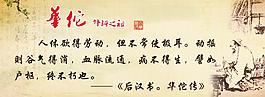 華佗 外科之祖
人体欲得劳动，但不当使极耳。动摇
则谷气得消，血脉流通，病不得生，譬如
户枢，终不朽也。
——《后汉书。华佗传》